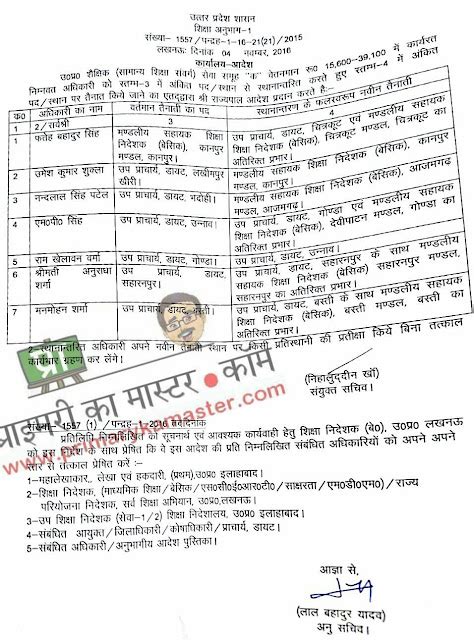 उत्तर प्रदेश शासन
शिक्षा अनुभाग-1
संख्या- 1557 /पन्द्रह-1-16-21(21)/2015
लखनऊः दिनांक 04 नवम्बर, 2016
कार्यालय-आदेश
उ०प्र० शैक्षिक (सामान्य शिक्षा संवर्ग) सेवा समूह "क" वेतनमान रू० 15,600-39,100 में कार्यरत
निम्नवत अधिकारी को स्तम्भ-3 में अंकित पद/स्थान से स्थानान्तरित करते हुए स्तम्भ-4 में अंकित
पद/स्थान पर तैनात किये जाने का एतद्द्वारा श्री राज्यपाल आदेश प्रदान करते है:-
क0 अधिकारी का नाम वर्तमान तैनाती का पद स्थानान्तरण के फलस्वरूप नवीन तैनाती
1 2/सर्वश्री 3 4
1 फतेह बहादुर सिंह मण्डलीय सहायक शिक्षा निदेशक (बेसिक), कानपुर मण्डल, कानपुर। उप प्राचार्य, डायट, चित्रकूट एवं मण्डलीय सहायक शिक्षा निदेशक (बेसिक), चित्रकूट मण्डल, चित्रकूट का अतिरिक्त प्रभार।
2 उमेश कुमार शुक्ला उप प्राचार्य, डायट, लखीमपुर खीरी। मण्डलीय सहायक शिक्षा निदेशक (बेसिक), कानपुर मण्डल, कानपुर।
3 नन्दलाल सिंह पटेल उप प्राचार्य, डायट, भदोही। मण्डलीय सहायक शिक्षा निदेशक (बेसिक), आजमगढ़ मण्डल, आजमगढ़।
4 एम०पी० सिंह उप प्राचार्य, डायट, उन्नाव। उप प्राचार्य, डायट, गोण्डा एवं मण्डलीय सहायक शिक्षा निदेशक (बेसिक), देवीपाटन मण्डल, गोण्डा का अतिरिक्त प्रभार।
5 राम खेलावन वर्मा उप प्राचार्य, डायट, गोण्डा। उप प्राचार्य, डायट, उन्नाव।
6 श्रीमती अनुराधा शर्मा उप प्राचार्य, डायट, सहारनपुर। उप प्राचार्य, डायट, सहारनपुर के साथ मण्डलीय सहायक शिक्षा निदेशक (बेसिक) सहारनपुर मण्डल, सहारनपुर का अतिरिक्त प्रभार।
7 मनमोहन शर्मा उप प्राचार्य, डायट, बस्ती। उप प्राचार्य, डायट, बस्ती के साथ मण्डलीय सहायक शिक्षा निदेशक (बेसिक), बस्ती मण्डल, बस्ती का अतिरिक्त प्रभार।
2-स्थानान्तरित अधिकारी अपने नवीन तैनाती स्थान पर किसी प्रतिस्थानी की प्रतीक्षा किये बिना तत्काल
कार्यभार ग्रहण कर लेंगे।
(निहालुद्दीन खाँ)
संयुक्त सचिव।
प्रा
प्राइमरी का मास्टर ● कॉम
www.primarykamaster.com
संख्या- 1557 (1) /पन्द्रह-1-2016 तद्दिनांक
प्रतिलिपि निम्नलिखित को सूचनार्थ एवं आवश्यक कार्यवाही हेतु शिक्षा निदेशक (बे०), उ०प्र० लखनऊ
को इस निदेश के साथ प्रेषित कि वे इस आदेश की प्रति निम्नलिखित संबंधित अधिकारियों को अपने अपने
स्तर से तत्काल प्रेषित करें :-
1-महालेखाकार, लेखा एवं हकदारी, (प्रथम),उ०प्र० इलाहाबाद।
2-शिक्षा निदेशक, (माध्यमिक शिक्षा/बेसिक/एस०सी०ई०आर०टी०/साक्षरता/एम०डी०एम०)/ राज्य
परियोजना निदेशक, सर्व शिक्षा अभियान, उ०प्र०,लखनऊ।
3-उप शिक्षा निदेशक (सेवा-1/2) शिक्षा निदेशालय, उ०प्र० इलाहाबाद।
4-संबंधित आयुक्त/जिलाधिकारी/कोषाधिकारी/प्राचार्य, डायट।
5-संबंधित अधिकारी/अनुभागीय आदेश पुस्तिका।
आज्ञा से,
(लाल बहादुर यादव)
अनु सचिव।